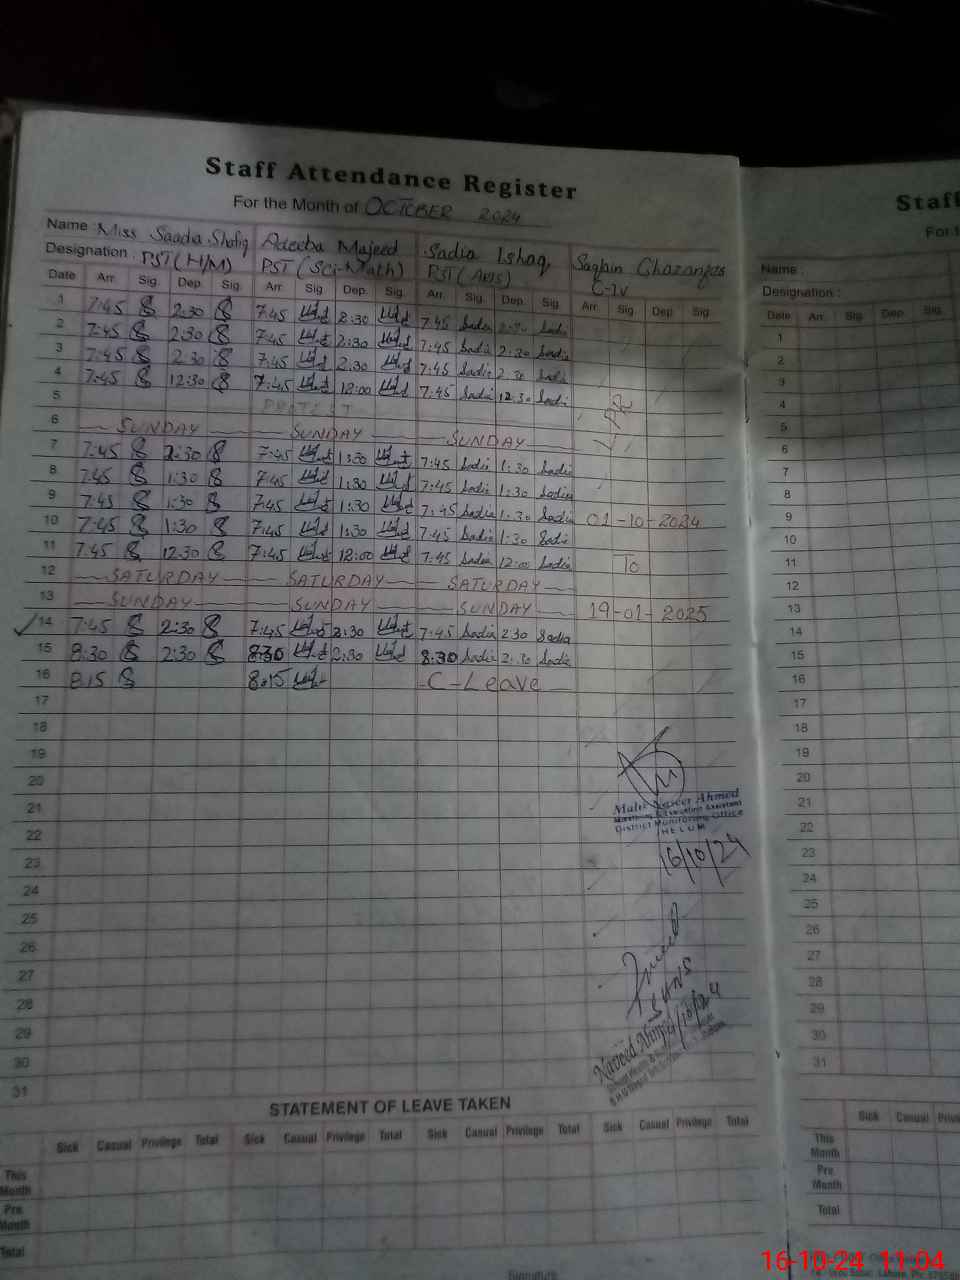 Staff Attendance Register
For the Month of OCTOBER 2024
Name : Miss Saadia Shafiq Adeeba Majeed Sadia Ishaq Saghin
Designation : PST (H/M) PST (Sci-Math) PST (Arts) C-IV
Date Arr. Sig. Dep. Sig. Arr. Sig. Dep. Sig. Arr. Sig. Dep. Sig. Arr. Sig. Dep. Sig.
1 7:45 2:30 7:45 2:30 7:45 Sadia 2:30 Sadia
2 7:45 2:30 7:45 2:30 7:45 Sadia 2:30 Sadia
3 7:45 2:30 7:45 2:30 7:45 Sadia 2:30 Sadia
4 7:45 12:30 7:45 12:00 7:45 Sadia 12:30 Sadia
5
6 SUNDAY SUNDAY SUNDAY
7 7:45 2:30 7:45 1:30 7:45 Sadia 1:30 Sadia
8 7:45 1:30 7:45 1:30 7:45 Sadia 1:30 Sadia
9 7:45 1:30 7:45 1:30 7:45 Sadia 1:30 Sadia 01-10-2024
10 7:45 1:30 7:45 1:30 7:45 Sadia 1:30 Sadia
11 7:45 12:30 7:45 12:00 7:45 Sadia 12:00 Sadia To
12 SATURDAY SATURDAY SATURDAY
13 SUNDAY SUNDAY SUNDAY 19-01-2025
14 7:45 2:30 7:45 2:30 7:45 Sadia 2:30 Sadia
15 8:30 2:30 8:30 2:30 8:30 Sadia 2:30 Sadia
16 8:15 8:15 C-Leave
17
18
19
20
21
22
23
24
25
26
27
28
29
30
31
Ahmed
Monitoring & Evaluation Assistant
District Monitoring Office
JHELUM
16/10/24
SHNS
Naveed Ahmed
STATEMENT OF LEAVE TAKEN
Sick Casual Privilege Total Sick Casual Privilege Total Sick Casual Privilege Total Sick Casual Privilege Total
This Month
Pre. Month
Total
Signature
Staff
Name :
Designation :
Date Arr. Sig. Dep. Sig.
1
2
3
4
5
6
7
8
9
10
11
12
13
14
15
16
17
18
19
20
21
22
23
24
25
26
27
28
29
30
31
Sick Casual
This Month
Pre. Month
Total
16-10-24 11:04